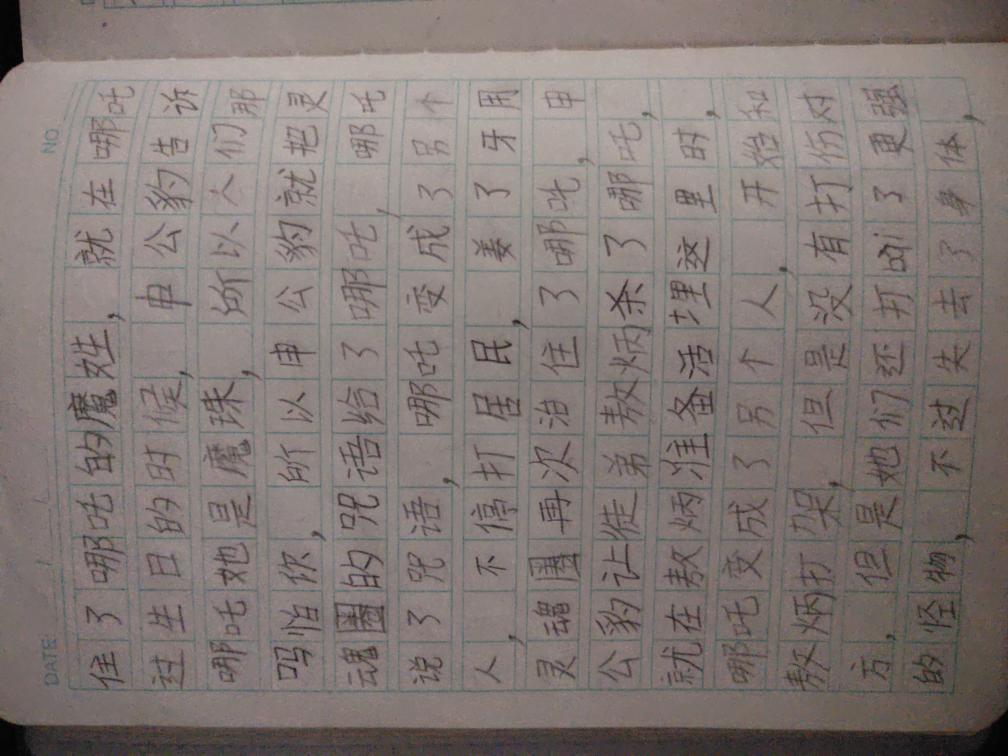 DATE / /
NO.
住了哪吒的魔姓，就在哪吒
过生日的时候，申公豹告诉
哪吒她是魔珠，所以人们那
吗怕你，所以申公豹就把灵
魂圈的咒语给了哪吒，哪吒
说了咒语，哪吒变成了另个
人，不停打居民，姜了牙用
灵魂圈再次治住了哪吒，申
公豹让徒弟敖炳杀了哪吒，
就在敖炳准备活埋这里时，
哪吒变成了另个人，开始和
敖炳打架，但是没有打伤对
方，但是她们还打bài了更强
的怪物，不过失去了身体，